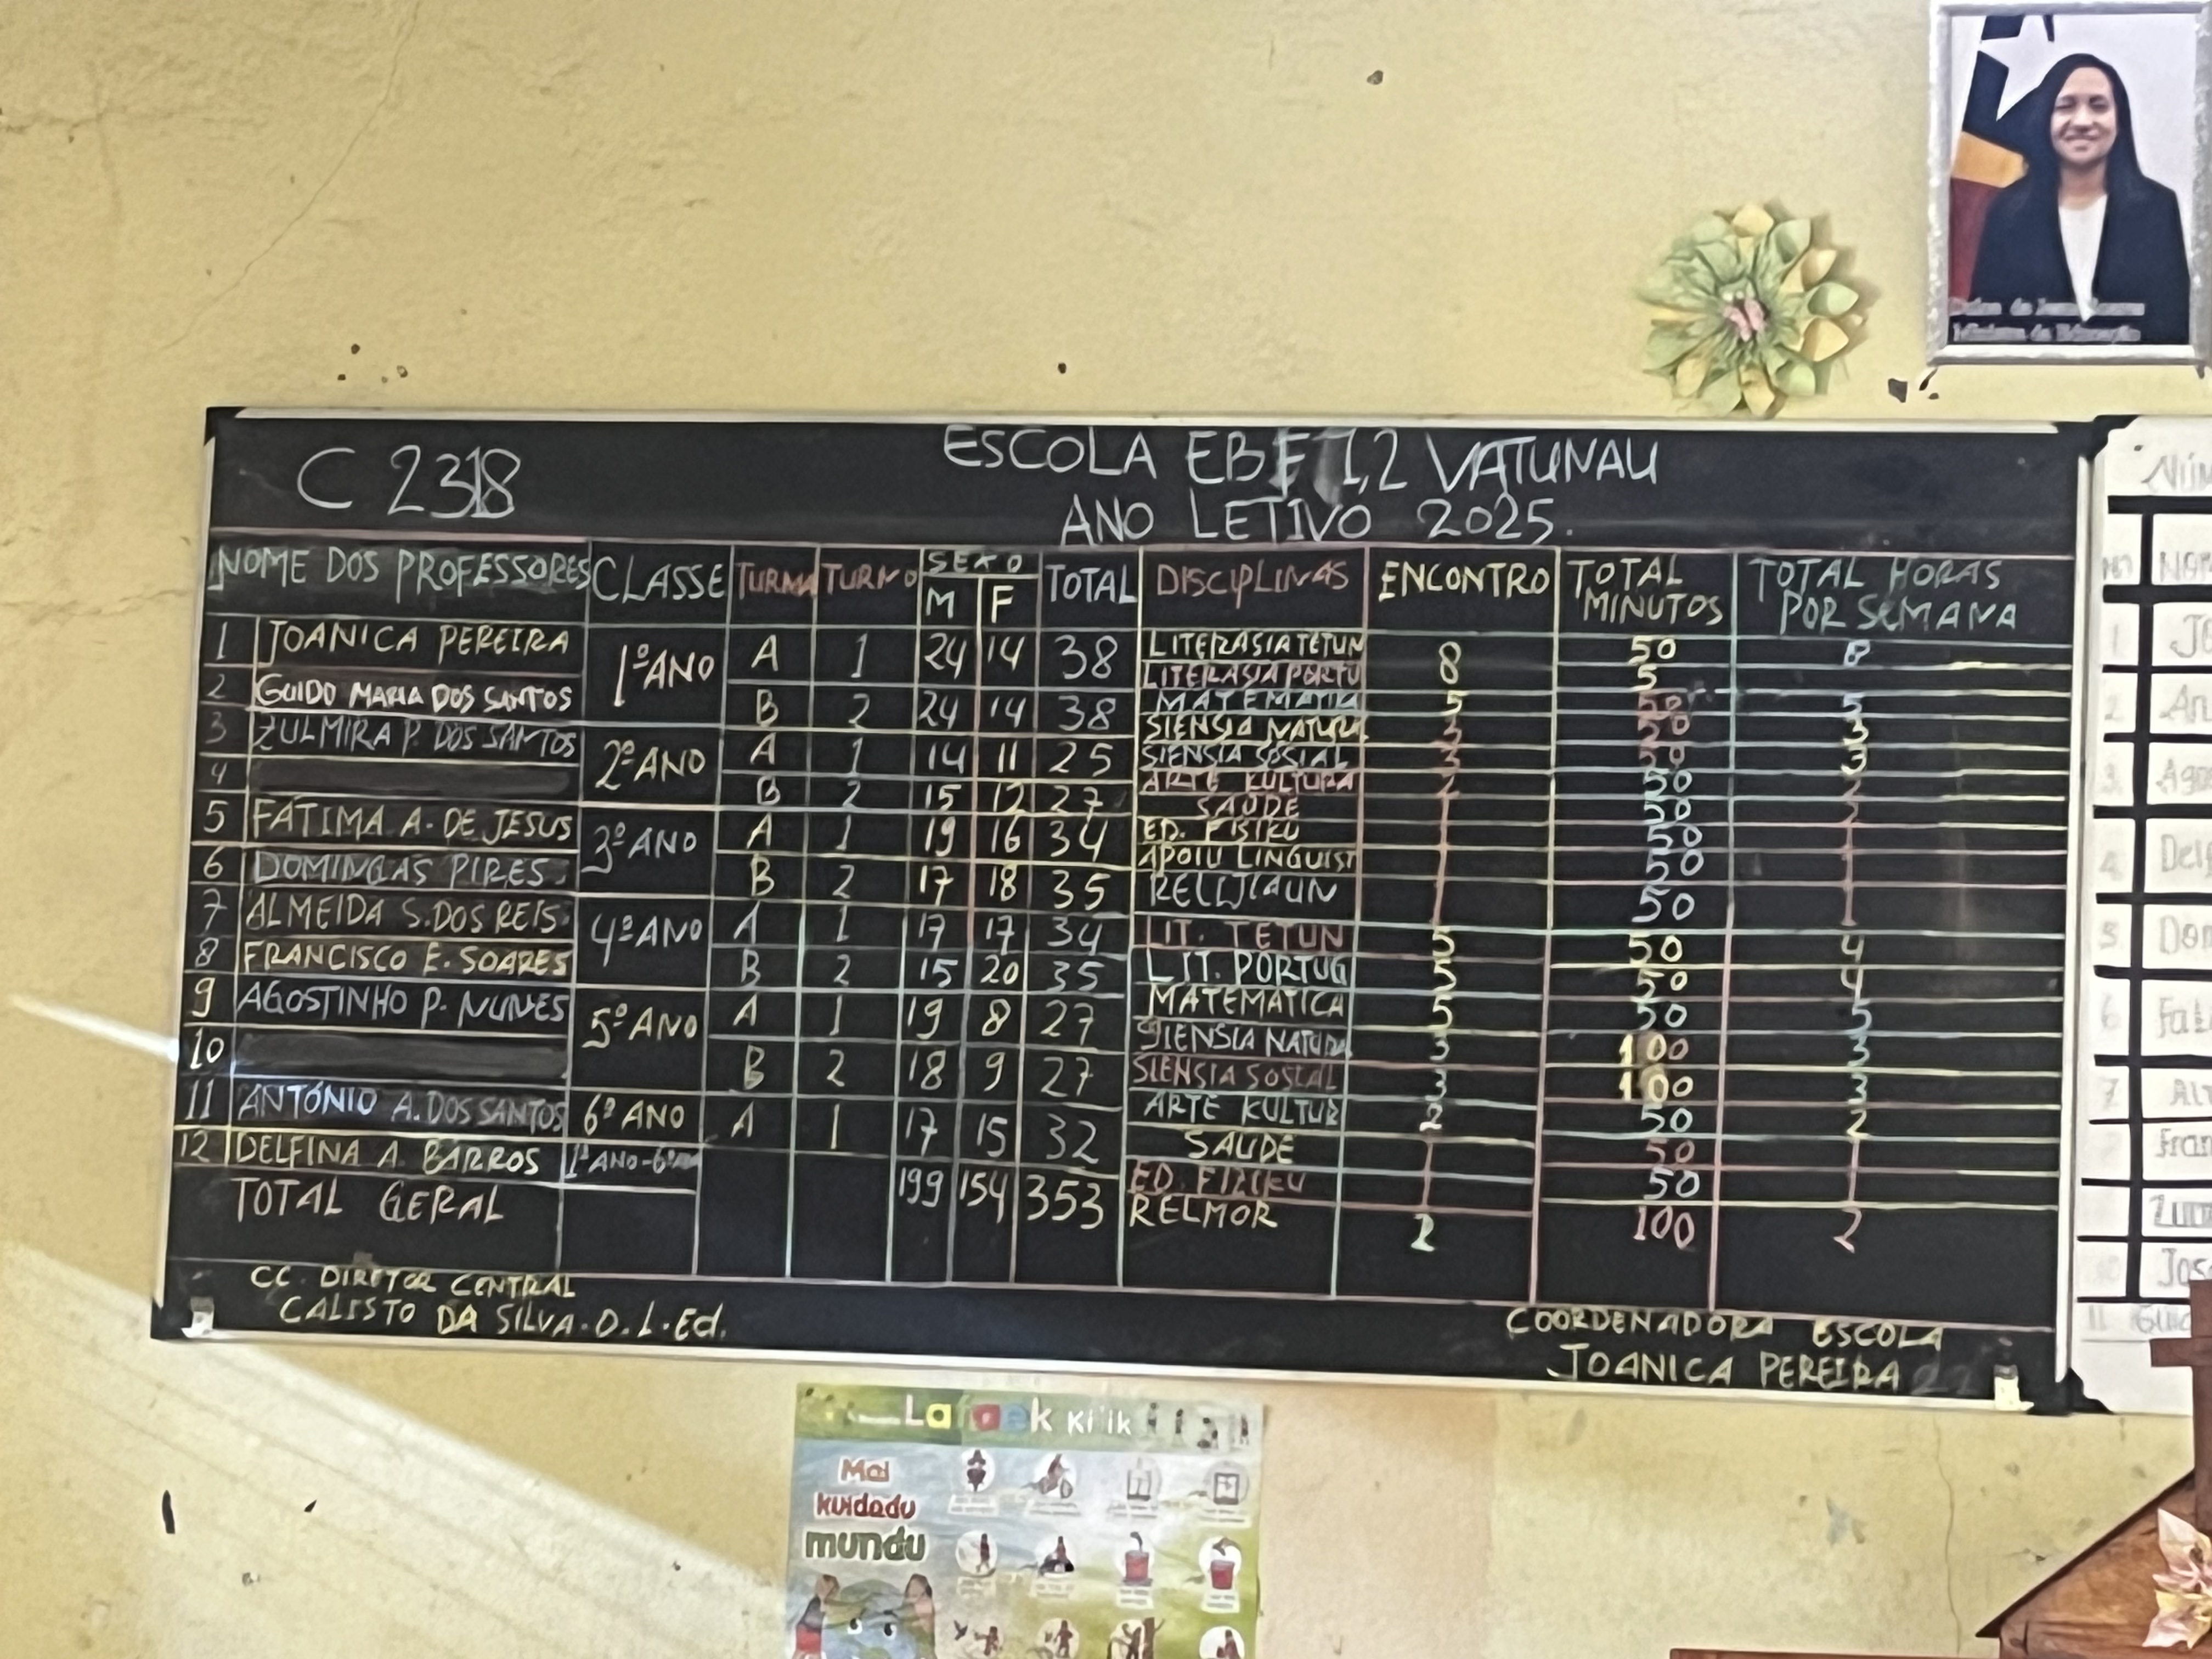 C 2318
ESCOLA EBF 1,2 VATUNAU
ANO LETIVO 2025.
NOME DOS PROFESSORES CLASSE TURMA TURNO SEXO M F TOTAL DISCIPLINAS ENCONTRO TOTAL MINUTOS TOTAL HORAS POR SEMANA
1 JOANICA PEREIRA
2 GUIDO MARIA DOS SANTOS
3 ZULMIRA P. DOS SANTOS
4
5 FATIMA A. DE JESUS
6 DOMINGAS PIRES
7 ALMEIDA S. DOS REIS
8 FRANCISCO E. SOARES
9 AGOSTINHO P. NUNES
10
11 ANTÓNIO A. DOS SANTOS
12 DELFINA A. BARROS 1º ANO-6º
TOTAL GERAL 199 154 353
1º ANO A 1 24 14 38
B 2 24 14 38
2º ANO A 1 14 11 25
B 2 15 12 27
3º ANO A 1 19 16 34
B 2 17 18 35
4º ANO A 1 17 17 34
B 2 15 20 35
5º ANO A 1 19 8 27
B 2 18 9 27
6º ANO A 1 17 15 32
LITERASIA TETUN 8 50 8
LITERASIA PORTU 5
MATEMATIKA 5 50 5
SIENSIA NATURA 3 50 3
SIENSIA SOSIAL 3 50 3
ARTE KULTURA 2 50 2
SAUDE 1 50 1
ED. FISIKU 1 50 1
APOIU LINGUIST 1 50 1
RELIJIAUN 1 50 1
LIT. TETUN 5 50 4
LIT. PORTUG 5 50 4
MATEMATICA 5 50 5
SIENSIA NATURA 3 100 3
SIENSIA SOSIAL 3 100 3
ARTE KULTUR 2 50 2
SAUDE 1 50 1
ED. FIZIKU 1 50 1
RELMOR 2 100 2
CC. DIRETOR CENTRAL
CALISTO DA SILVA. D. L. Ed.
COORDENADORA ESCOLA
JOANICA PEREIRA
Ministra da Educação
Lafaek Kiik
Mai
kuidadu
mundu